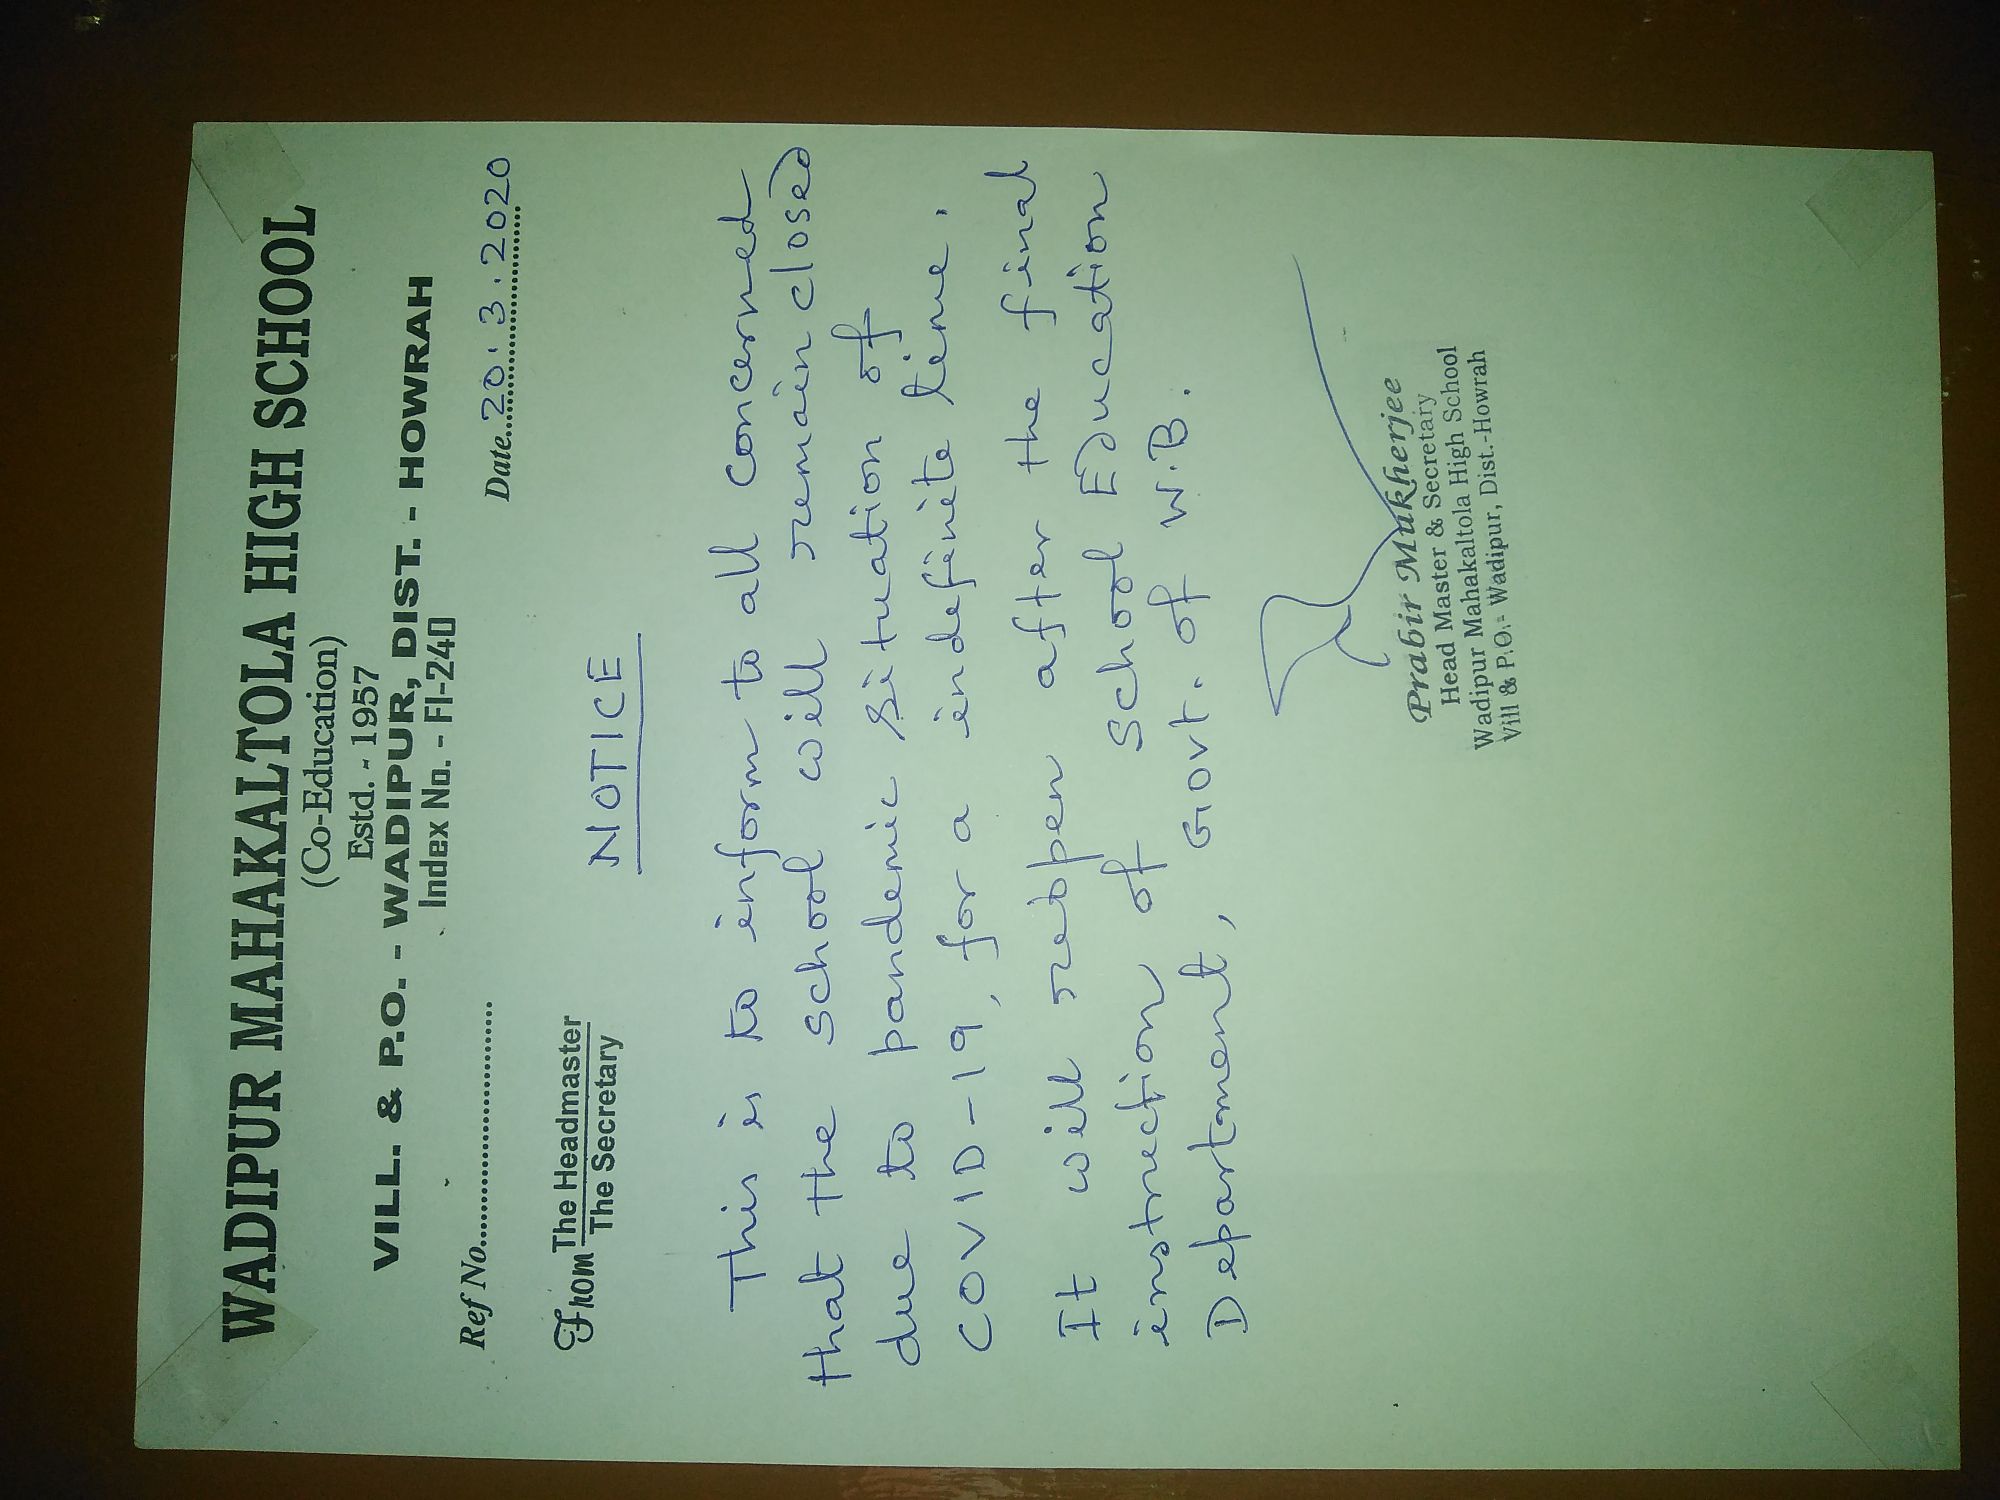 WADIPUR MAHAKALTOLA HIGH SCHOOL
(Co-Education)
Estd. - 1957
VILL. & P.O. - WADIPUR, DIST. - HOWRAH
Index No. - FI-240
Ref No................................ Date...20.3.2020
From The Headmaster
The Secretary
NOTICE
This is to inform to all concerned
that the school will remain closed
due to pandemic situation of
COVID-19, for a indefinite time.
It will reopen after the final
instruction of School Education
Department, Govt. of W.B.
Prabir Mukherjee
Head Master & Secretary
Wadipur Mahakaltola High School
Vill & P.O.- Wadipur, Dist.-Howrah